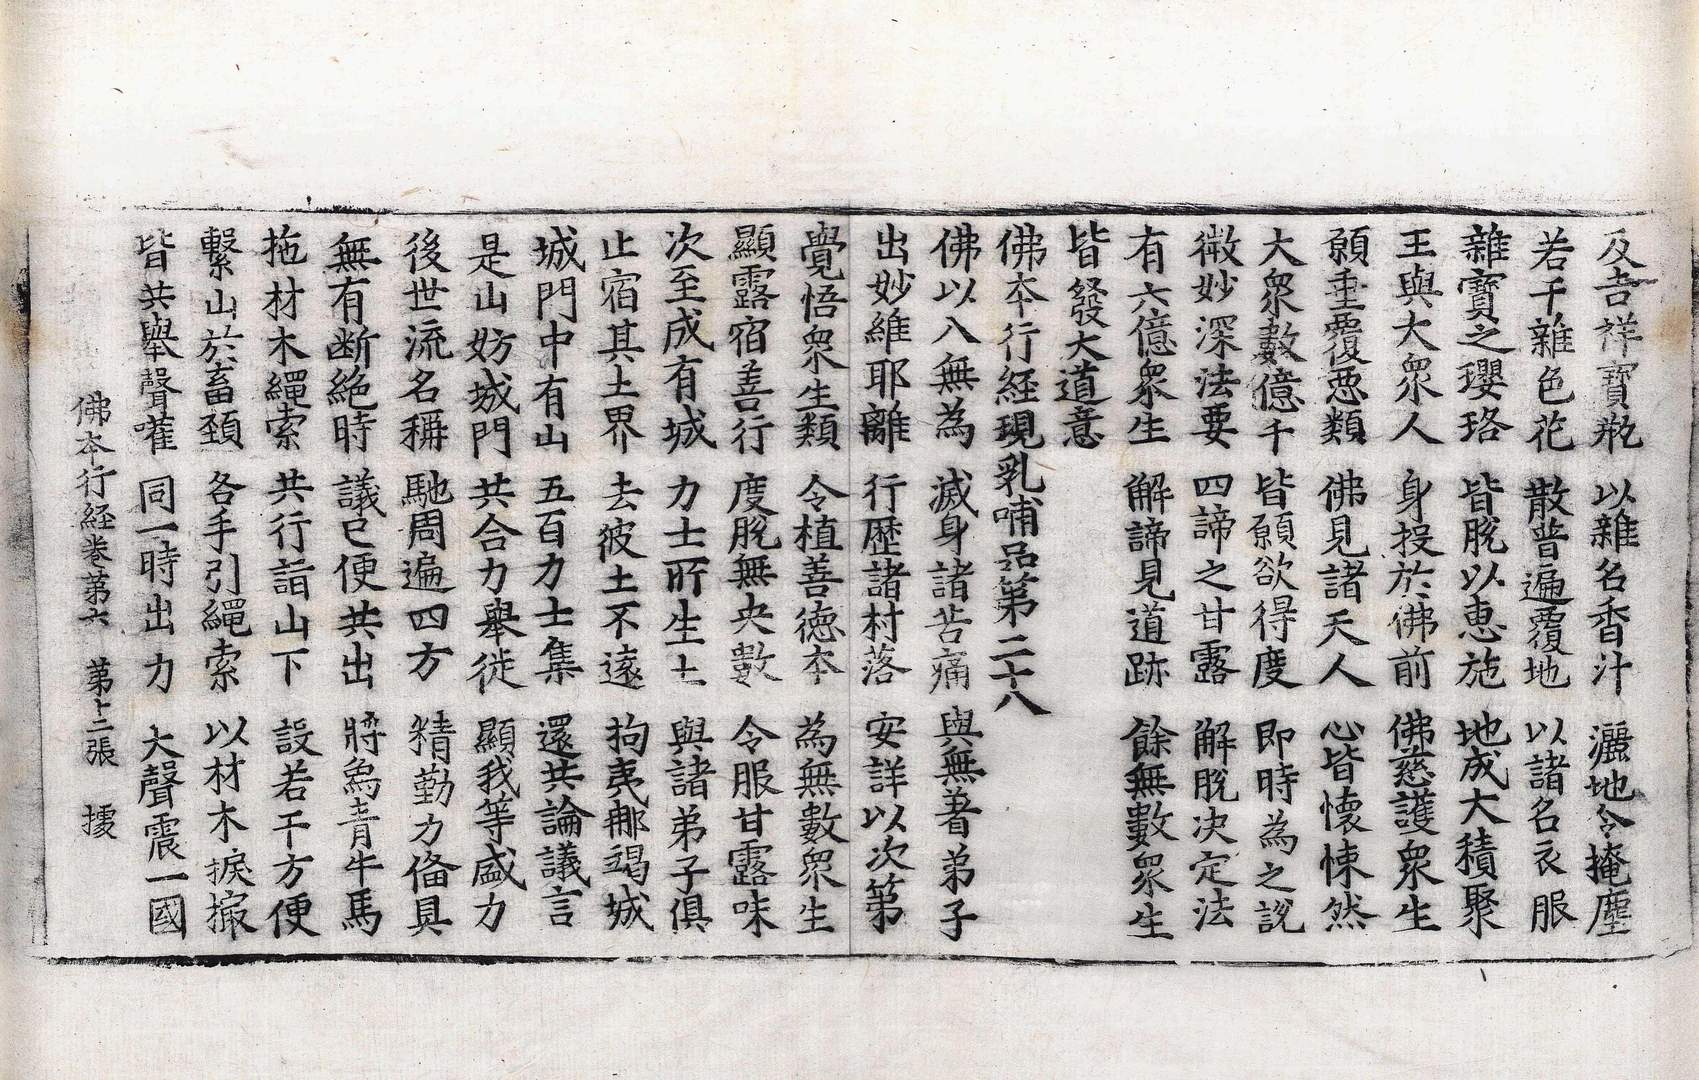 及吉祥寶瓶 以雜名香汁 灑地令掩塵
若干雜色花 散普遍覆地 以諸名衣服
雜寶之瓔珞 皆脫以惠施 地成大積聚
王與大眾人 身投於佛前 佛慈護眾生
願垂覆惡類 佛見諸天人 心皆懷悚然
大眾數億千 皆願欲得度 即時為之說
微妙深法要 四諦之甘露 解脫決定法
有六億眾生 解諦見道跡 餘無數眾生
皆發大道意
佛本行經現乳哺品第二十八
佛以入無為 滅身諸苦痛 與無著弟子
出妙維耶離 行歷諸村落 安詳以次第
覺悟眾生類 令植善德本 為無數眾生
顯露宿善行 度脫無央數 令服甘露味
次至成有城 力士所生土 與諸弟子俱
止宿其土界 去彼土不遠 拘夷那竭城
城門中有山 五百力士集 還共論議言
是山妨城門 共合力舉徙 顯我等盛力
後世流名稱 馳周遍四方 精勤力俻具
無有断絕時 議已便共出 將烏青牛馬
拖材木繩索 共行詣山下 設若干方便
繫山於畜頸 各手引繩索 以材木捩撮
皆共舉聲嚾 同一時出力 大聲震一國
佛本行經卷第六 第十二張 據